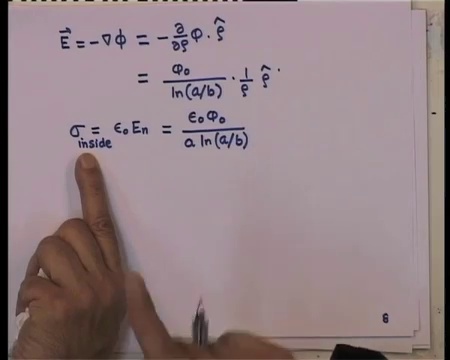 E⃗ = -∇φ = - ∂/∂ρ φ · ρ̂
= φ₀/ln(a/b) · 1/ρ ρ̂
σ inside = ε₀ Eₙ = ε₀φ₀/a ln(a/b)
8